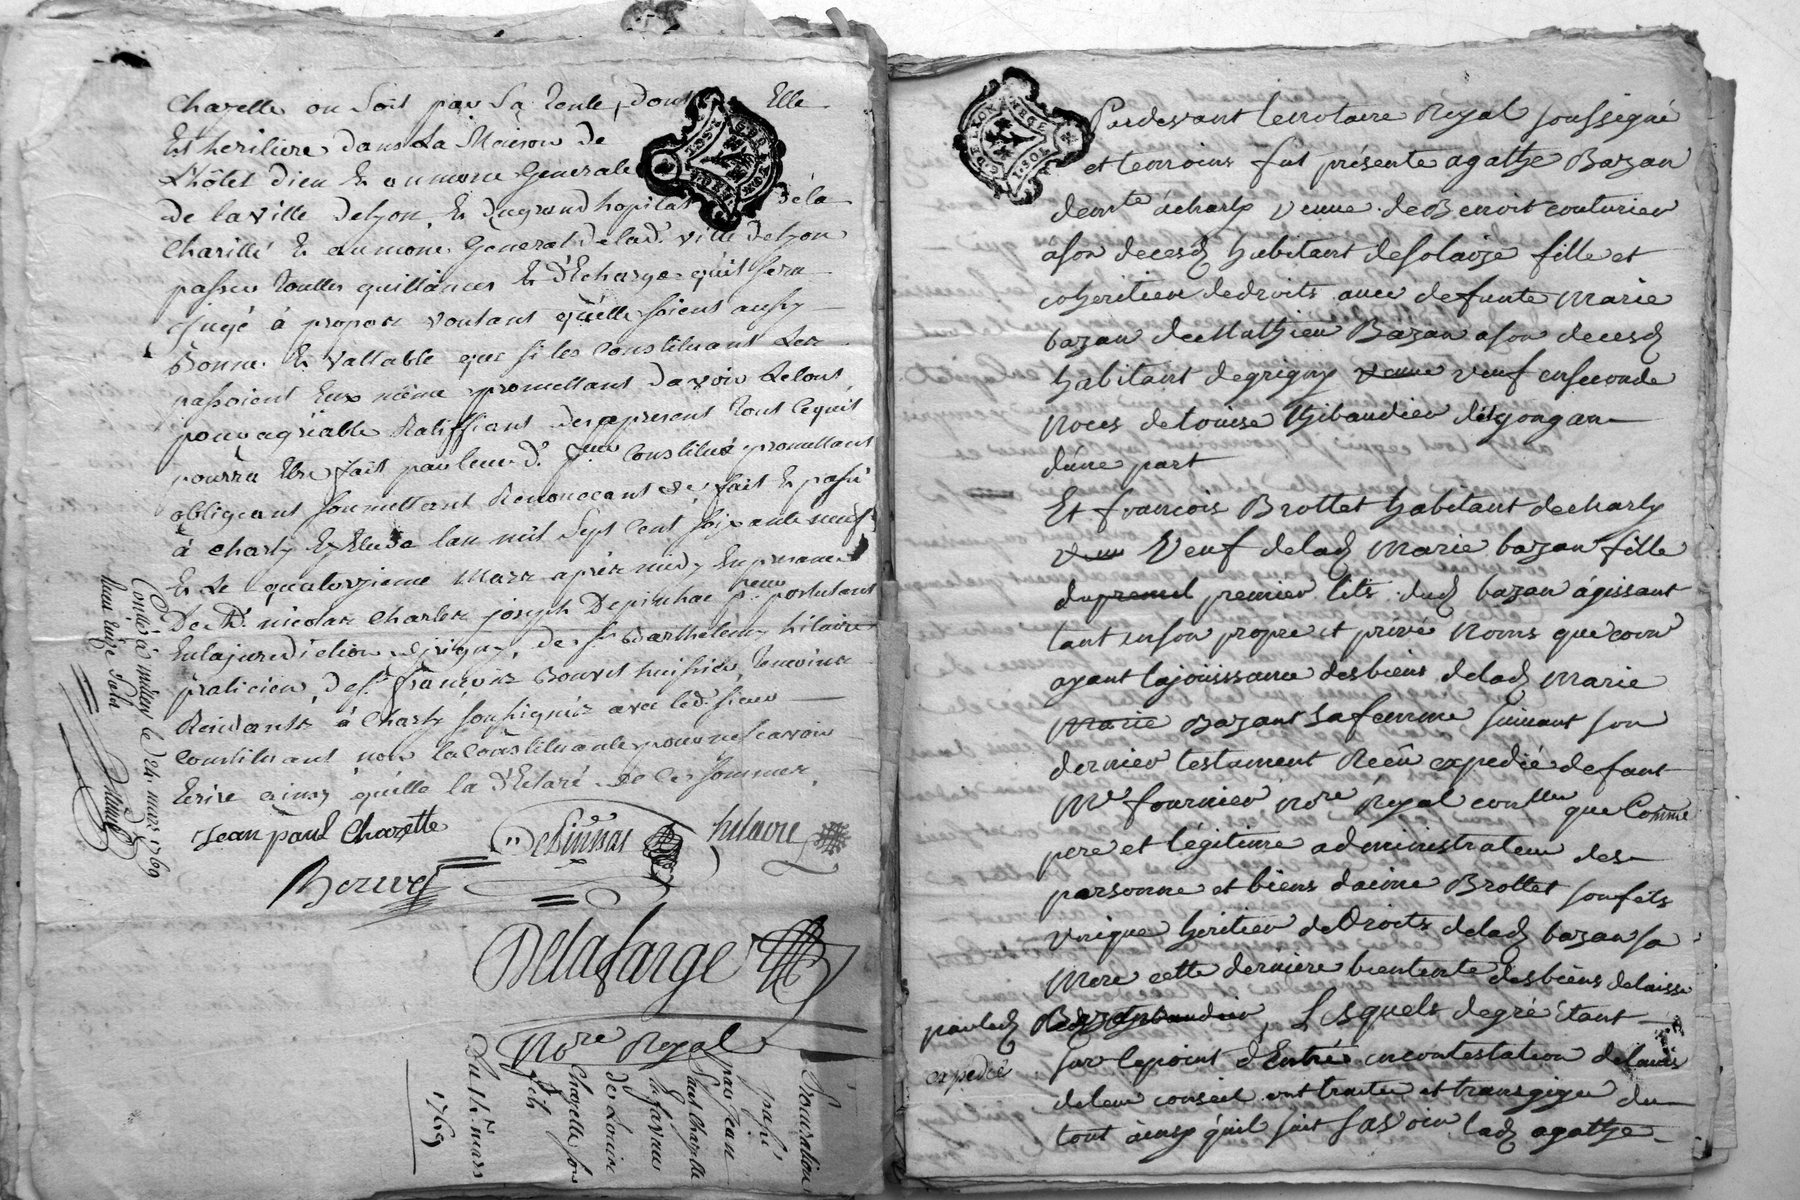 Chazette ou soit par Sa Tente, dont Elle
Est heritiere dans La Maison de
L'hôtel dieu Et aumone Generale
De la ville De Lyon Et du grand hopital De la
Charitté Et aumone General De lad. ville De Lyon
passer Touttes quittances Et D'Echarge qu'il sera
Jugé à propos voulant qu'elle soient aussy
Bonne Et vallable que si les Constituant Les
passoient Eux même promettant D'avoir Le tout
pour agréable Ratiffiant Des apresent Tout Ce quil
pourra Etre fait par leur d. preur Constitué promettant
obligeant soumettant Renonceant &c. fait Et passé
à Charly Etude l'an mil Sept Cent soixante neuf
Et Le quatorzieme Mars après midy En presence
De Me nicolas Charles joseph Depinhac preur postulant
En la jurediction, de sr Barthelemy hilaire
praticien, de sr françois Bouvet huissier, Temoins
Residants à Charly soussignés avec led. sieur
Constituant non la Constituante pour ne scavoir
Ecrire ainsy qu'elle la D'Eclaré de Ce Sommer.
Jean paul Chazette
hilaire
Delafarge
Nore Royal
Controllé à millery le 24. mars 1769
Procuration
passé
par Jean
paul Chazette
En faveur
de Louise
Chazette sa
Du 14e mars
1769
Pardevant le notaire Royal soussigné
et temoins fut présente agathe Bazan
demte à charly veuve de Benoit couturier
a son decesd habitant de solaize fille et
coheritiere de droits avec defunte Marie
bazan de Mathieu Bazan a son decesd
habitant de grigny veuve veuf en seconde
noces de Louise thibaudier
d'une part
Et françois Brottet habitant de charly
Veuf de lad Marie bazan fille
du premier lits dud bazan agissant
tant en son propre et privé Noms que com
ayant la joüissance des biens de lad Marie
Marie Bazant sa femme suivant son
dernier testament Reçû expedié defunt
Me fournier Nore Royal conller que Comme
pere et légitime administrateur des
parsonne et biens d'aimé Brottet son fils
Unique héritier de Droits de lad bazan sa
Mere cette derniere biententte des biens delaissé
par lad Lesquels de gré étant
expedié
sur le point d'Entré en contestation de lavis
de leur conseil ont traité et transigé du
tout ainsy qu'il suit savoir lad agathe